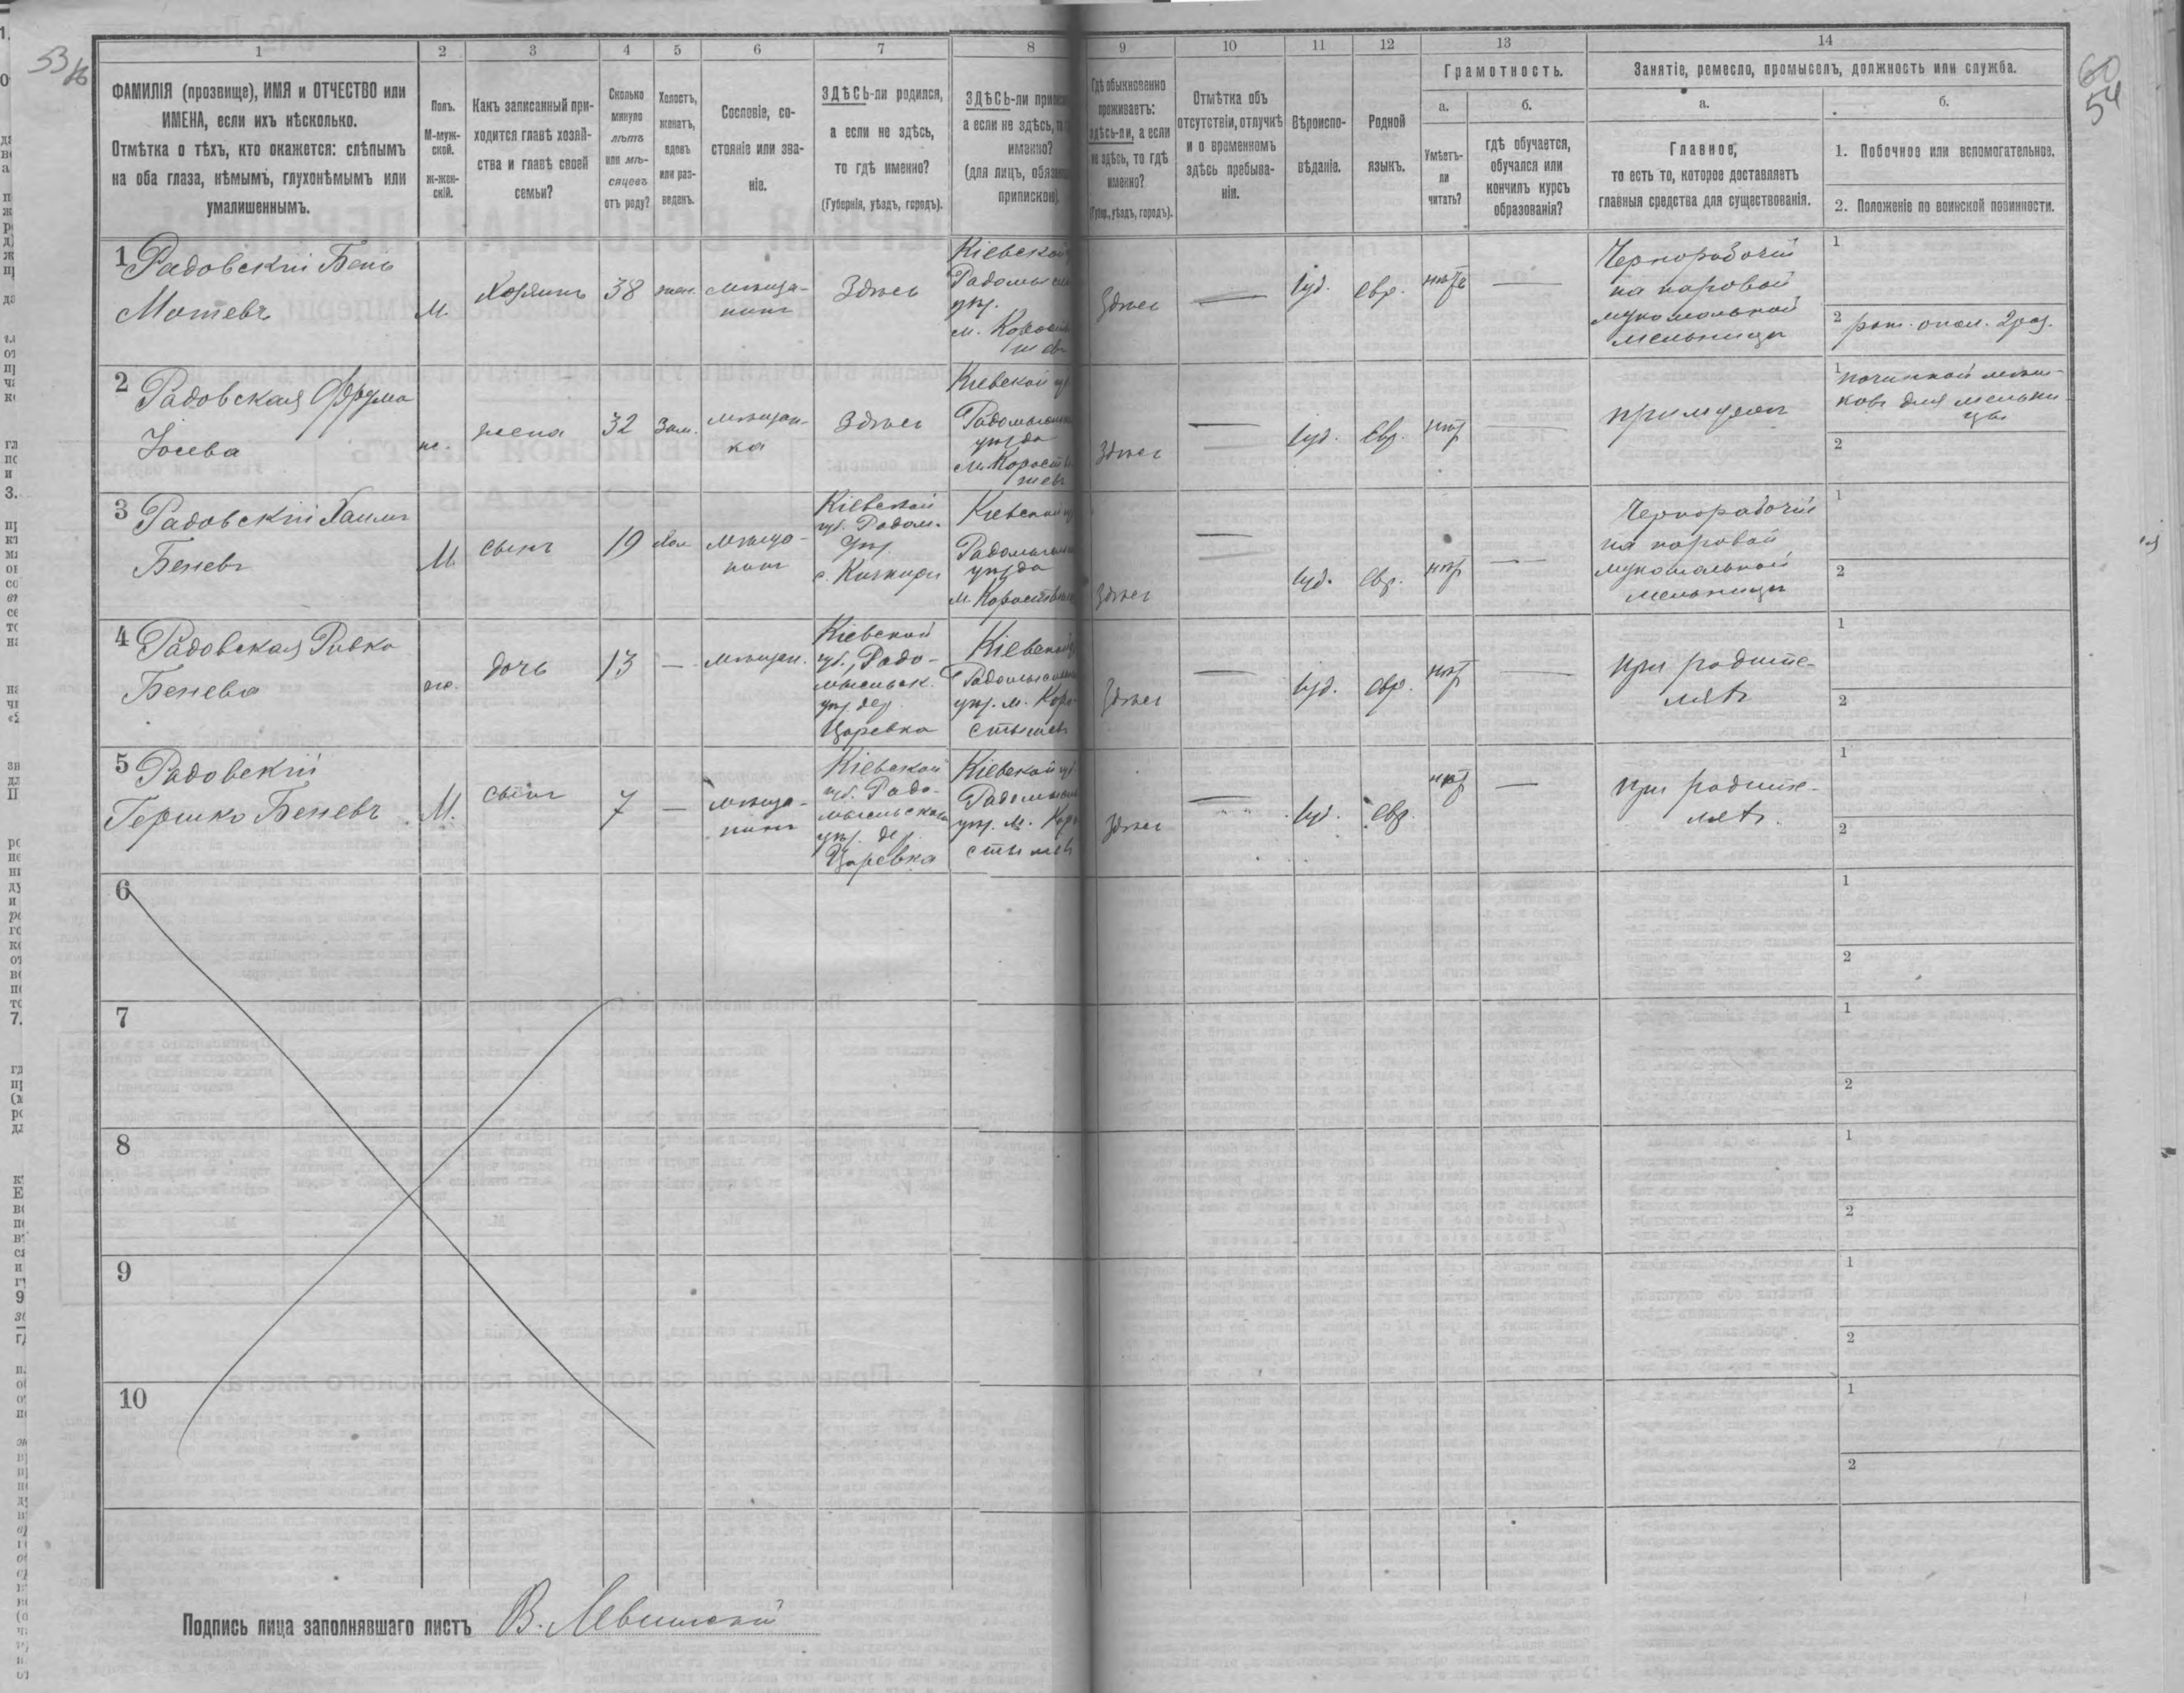 53 об
60
54
1 2 3 4 5 6 7 8 9 10 11 12 13 14
ФАМИЛІЯ (прозвище), ИМЯ и ОТЧЕСТВО или
ИМЕНА, если ихъ нѣсколько.
Отмѣтка о тѣхъ, кто окажется: слѣпымъ
на оба глаза, нѣмымъ, глухонѣмымъ или
умалишеннымъ.
Полъ.
М-муж-
ской.
Ж-жен-
скій.
Какъ записанный при-
ходится главѣ хозяй-
ства и главѣ своей
семьи?
Сколько
минуло
лѣтъ
или мѣ-
сяцевъ
отъ роду?
Холостъ,
женатъ,
вдовъ
или раз-
веденъ.
Сословіе, со-
стояніе или зва-
ніе.
ЗДѢСЬ-ли родился,
а если не здѣсь,
то гдѣ именно?
(Губернія, уѣздъ, городъ).
ЗДѢСЬ-ли
а если не здѣсь,
именно?
(для лицъ,
припискою)
Гдѣ обыкновенно
проживаетъ:
здѣсь-ли, а если
не здѣсь, то гдѣ
именно?
(Губер., уѣздъ, городъ).
Отмѣтка объ
отсутствіи, отлучкѣ
и о временномъ
здѣсь пребыва-
ніи.
Вѣроиспо-
вѣданіе.
Родной
языкъ.
Грамотность.
а.
Умѣетъ-
ли
читать?
б.
гдѣ обучается,
обучался или
кончилъ курсъ
образованія?
Занятіе, ремесло, промыселъ, должность или служба.
а.
Главное,
то есть то, которое доставляетъ
главныя средства для существованія.
б.
1. Побочное или вспомогательное.
2. Положеніе по воинской повинности.
1 Радовскій Бень
Мотевъ
М.
Хозяинъ
38
жен.
мѣща-
нинъ
Здѣсь
Кіевской
Радомысл
уѣз.
м. Корости
шевъ
Здѣсь
—
Іуд.
Евр.
нѣтъ
—
Чернорабочій
на паровой
мукомольной
мельницѣ
1
2 рат. опол. 2 раз.
2 Радовская Фрума
Іосева
ж.
жена
32
Зам.
мѣщан-
ка
Здѣсь
Кіевской
Радомысл
уѣзда
м. Корости
шевъ
Здѣсь
—
Іуд.
Евр.
нѣт
—
при мужѣ
1 починкой мѣш-
ковъ для мельни-
цы
2
3 Радовскій Хаимъ
Беневъ
М.
сынъ
19
хол
мѣща-
нинъ
Кіевской
губ. Радом.
уѣз.
с. Кичкиры
Кіевской
Радомысл
уѣзда
м. Коростыш
Здѣсь
Іуд.
Евр.
нѣт
—
Чернорабочій
на паровой
мукомольной
мельницѣ
1
2
4 Радовская Ривка
Бенева
ж.
дочь
13
—
мѣщан.
Кіевской
губ., Радо-
мысльск.
уѣз. дер.
Царевка
Кіевской
Радомысльс
уѣз. м. Коро
стышев
Здѣсь
—
Іуд.
Евр.
нѣт
—
при родите-
ляхъ
1
2
5 Радовскій
Гершко Беневъ
М.
сынъ
7
—
мѣща-
нинъ
Кіевской
губ. Радо-
мысльскаго
уѣз. дер.
Царевка
Кіевской губ
Радомысл
уѣз. м. Коро
стышевъ
Здѣсь
—
Іуд.
Евр.
нѣт
—
при родите-
ляхъ.
1
2
6
1
2
7
1
2
8
1
2
9
1
2
10
1
2
Подпись лица заполнявшаго листъ В. Левинскій